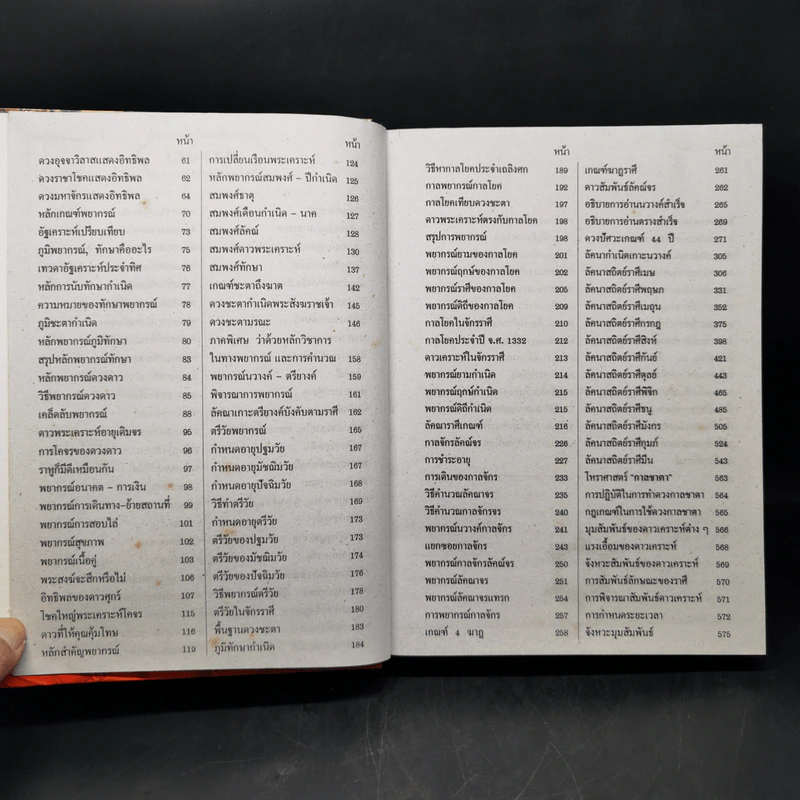 หน้า
ดวงอุจจาวิลาสแสดงอิทธิพล 61
ดวงราชาโชคแสดงอิทธิพล 62
ดวงมหาจักรแสดงอิทธิพล 64
หลักเกณฑ์พยากรณ์ 70
อัฐเคราะห์เปรียบเทียบ 73
ภูมิพยากรณ์, ทักษาคืออะไร 75
เทวดาอัฐเคราะห์ประจำทิศ 76
หลักการนับทักษากำเนิด 77
ความหมายของทักษาพยากรณ์ 78
ภูมิชะตากำเนิด 79
หลักพยากรณ์ภูมิทักษา 80
สรุปหลักพยากรณ์ทักษา 83
หลักพยากรณ์ดวงดาว 84
วิธีพยากรณ์ดวงดาว 85
เคล็ดลับพยากรณ์ 88
ดาวพระเคราะห์อายุเดิมจร 95
การโคจรของดวงดาว 96
ราหูก็มีดีเหมือนกัน 97
พยากรณ์อนาคต - การเงิน 98
พยากรณ์การเดินทาง-ย้ายสถานที่ 99
พยากรณ์การสอบไล่ 101
พยากรณ์สุขภาพ 102
พยากรณ์เนื้อคู่ 103
พระสงฆ์จะสึกหรือไม่ 106
อิทธิพลของดาวศุกร์ 107
โชคใหญ่พระเคราะห์โคจร 115
ดาวที่ให้คุณคุ้มโทษ 116
หลักสำคัญพยากรณ์ 119
หน้า
การเปลี่ยนเรือนพระเคราะห์ 124
หลักพยากรณ์สมพงศ์ - ปีกำเนิด 125
สมพงศ์ธาตุ 126
สมพงศ์เดือนกำเนิด - นาค 127
สมพงศ์ลัคณ์ 128
สมพงศ์ดาวพระเคราะห์ 130
สมพงศ์ทักษา 137
เกณฑ์ชะตาถึงฆาต 142
ดวงชะตากำเนิดพระสังฆราชเจ้า 145
ดวงชะตามรณะ 146
ภาคพิเศษ ว่าด้วยหลักวิชาการ
ในทางพยากรณ์ และการคำนวณ 158
พยากรณ์นวางค์ - ตรียางค์ 159
พิจารณาการพยากรณ์ 161
ลัคณาเกาะตรียางค์บังคับตามราศี 162
ตรีวัยพยากรณ์ 165
กำหนดอายุปฐมวัย 167
กำหนดอายุมัชฌิมวัย 167
กำหนดอายุปัจฉิมวัย 168
วิธีทำตรีวัย 169
กำหนดอายุตรีวัย 173
ตรีวัยของปฐมวัย 173
ตรีวัยของมัชฌิมวัย 174
ตรีวัยของปัจฉิมวัย 176
วิธีพยากรณ์ตรีวัย 178
ตรีวัยในจักรราศี 180
พื้นฐานดวงชะตา 183
ภูมิทักษากำเนิด 184
หน้า
วิธีหากาลโยคประจำเถลิงศก 189
กาลพยากรณ์กาลโยค 192
กาลโยคเทียบดวงชะตา 197
ดาวพระเคราะห์ตรงกับกาลโยค 198
สรุปการพยากรณ์ 198
พยากรณ์ยามของกาลโยค 201
พยากรณ์ฤกษ์ของกาลโยค 202
พยากรณ์ราศีของกาลโยค 205
พยากรณ์ดิถีของกาลโยค 209
กาลโยคในจักรราศี 210
กาลโยคประจำปี จ.ศ. 1332 212
ดาวเคราะห์ในจักรราศี 213
พยากรณ์ยามกำเนิด 214
พยากรณ์ฤกษ์กำเนิด 215
พยากรณ์ดิถีกำเนิด 215
ลัคณาราศีเกณฑ์ 216
กาลจักรลัคณ์จร 226
การชำระอายุ 227
การเดินของกาลจักร 233
วิธีคำนวณลัคณาจร 235
วิธีคำนวณกาลจักรจร 240
พยากรณ์นวางค์กาลจักร 241
แยกซอยกาลจักร 243
พยากรณ์กาลจักรลัคณ์จร 250
พยากรณ์ลัคณาจร 251
พยากรณ์ลัคณาจรแทรก 254
การพยากรณ์กาลจักร 257
เกณฑ์ 4 ฆาฏ 258
หน้า
เกณฑ์ฆาฏราศี 261
ดาวสัมพันธ์ลัคณ์จร 262
อธิบายการอ่านนวางค์สำเร็จ 265
อธิบายการอ่านตรางสำเร็จ 269
ดวงปัศวะเกณฑ์ 44 ปี 271
ลัคนากำเนิดเกาะนวางค์ 305
ลัคนาสถิตย์ราศีเมษ 305
ลัคนาสถิตย์ราศีพฤษภ 331
ลัคนาสถิตย์ราศีเมถุน 353
ลัคนาสถิตย์ราศีกรกฎ 375
ลัคนาสถิตย์ราศีสิงห์ 398
ลัคนาสถิตย์ราศีกันย์ 421
ลัคนาสถิตย์ราศีตุลย์ 443
ลัคนาสถิตย์ราศีพิจิก 465
ลัคนาสถิตย์ราศีธนู 485
ลัคนาสถิตย์ราศีมังกร 505
ลัคนาสถิตย์ราศีกุมภ์ 524
ลัคนาสถิตย์ราศีมีน 543
โหราศาสตร์ "กาลชาตา" 563
การปฏิบัติในการทำดวงกาลชาตา 564
กฎเกณฑ์ในการใช้ดวงกาลชาตา 565
มุมสัมพันธ์ของดาวเคราะห์ต่าง ๆ 566
แรงเอื้อมของดาวเคราะห์ 568
จังหวะสัมพันธ์ของดาวเคราะห์ 569
การสัมพันธ์ลักษณะของราศี 570
การพิจารณาสัมพันธ์ดาวเคราะห์ 571
การกำหนดระยะเวลา 572
จังหวะมุมสัมพันธ์ 575